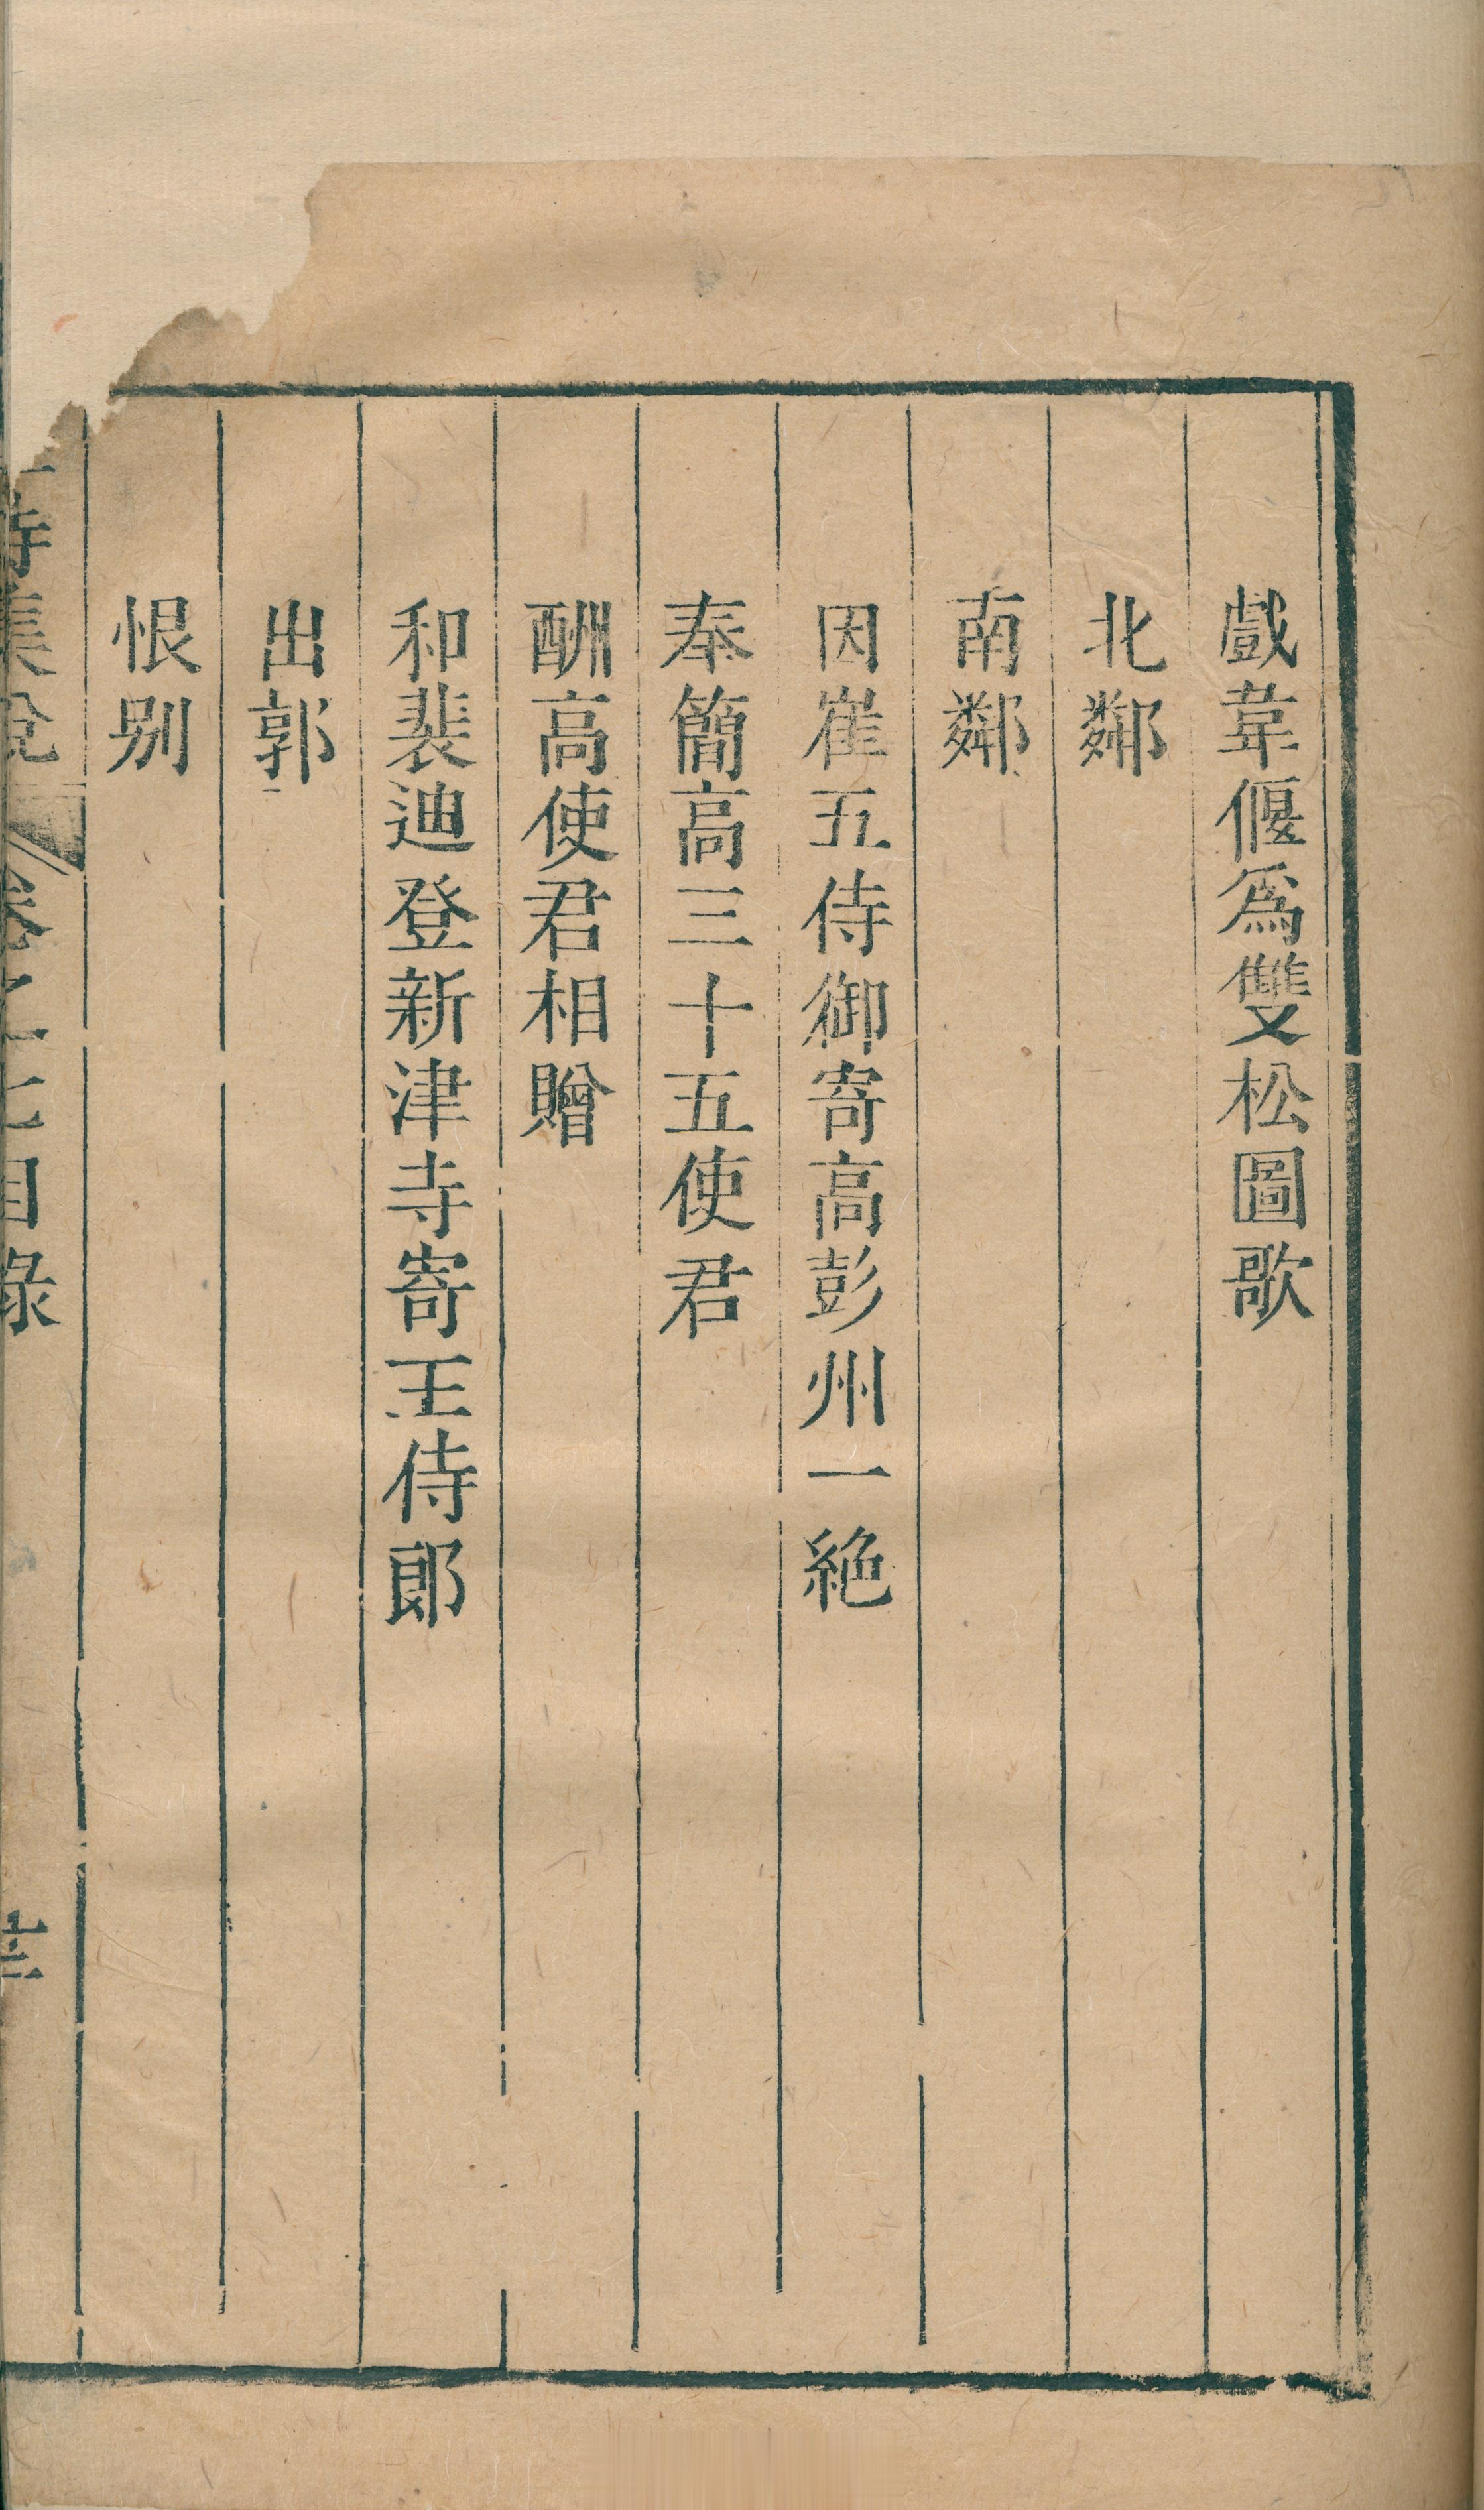 戲韋偃爲雙松圖歌
北鄰
南鄰
因崔五侍御寄高彭州一絶
奉簡高三十五使君
酬高使君相贈
和裴迪登新津寺寄王侍郎
出郭
恨别
詩集説 卷之七目錄